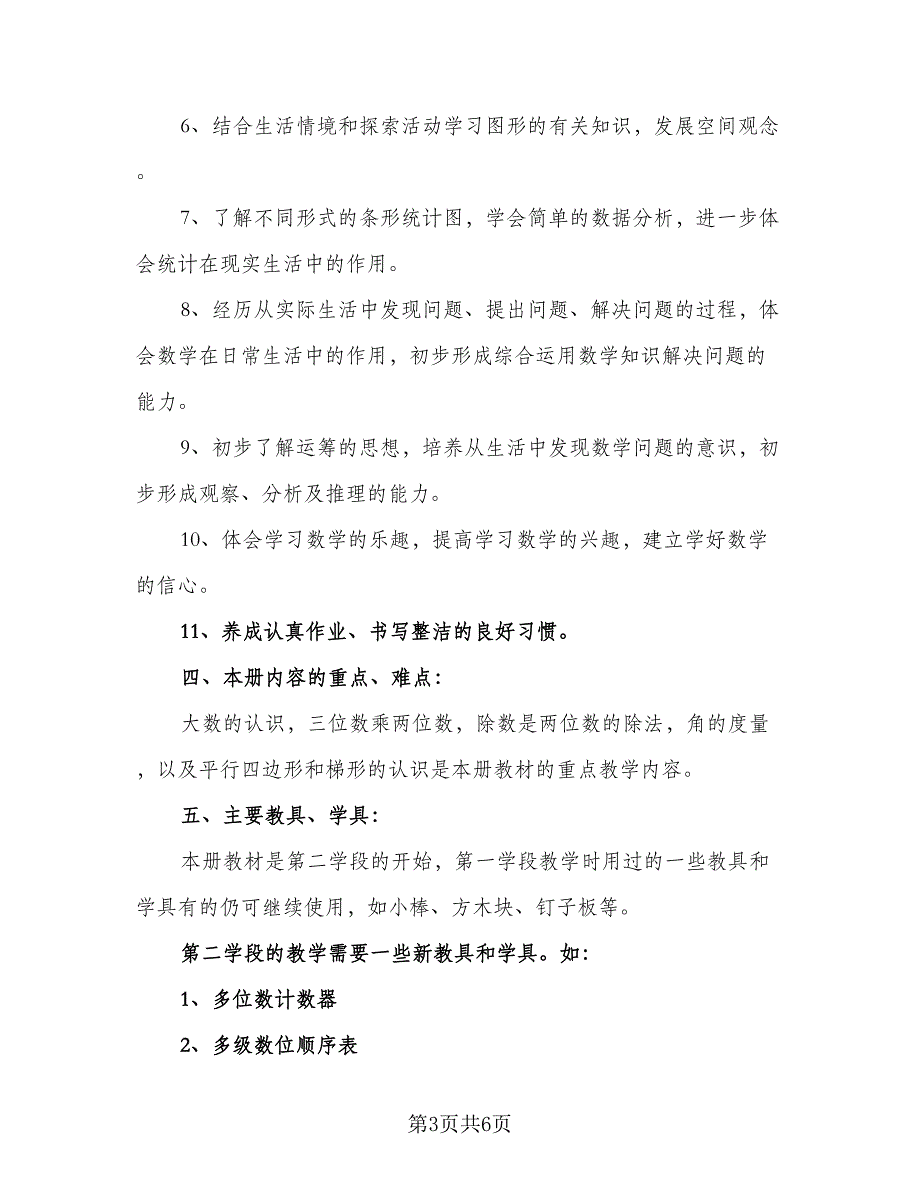 6、结合生活情境和探索活动学习图形的有关知识，发展空间观念
。
7、了解不同形式的条形统计图，学会简单的数据分析，进一步体
会统计在现实生活中的作用。
8、经历从实际生活中发现问题、提出问题、解决问题的过程，体
会数学在日常生活中的作用，初步形成综合运用数学知识解决问题的
能力。
9、初步了解运筹的思想，培养从生活中发现数学问题的意识，初
步形成观察、分析及推理的能力。
10、体会学习数学的乐趣，提高学习数学的兴趣，建立学好数学
的信心。
11、养成认真作业、书写整洁的良好习惯。
四、本册内容的重点、难点：
大数的认识，三位数乘两位数，除数是两位数的除法，角的度量
，以及平行四边形和梯形的认识是本册教材的重点教学内容。
五、主要教具、学具：
本册教材是第二学段的开始，第一学段教学时用过的一些教具和
学具有的仍可继续使用，如小棒、方木块、钉子板等。
第二学段的教学需要一些新教具和学具。如：
1、多位数计数器
2、多级数位顺序表
第3页共6页